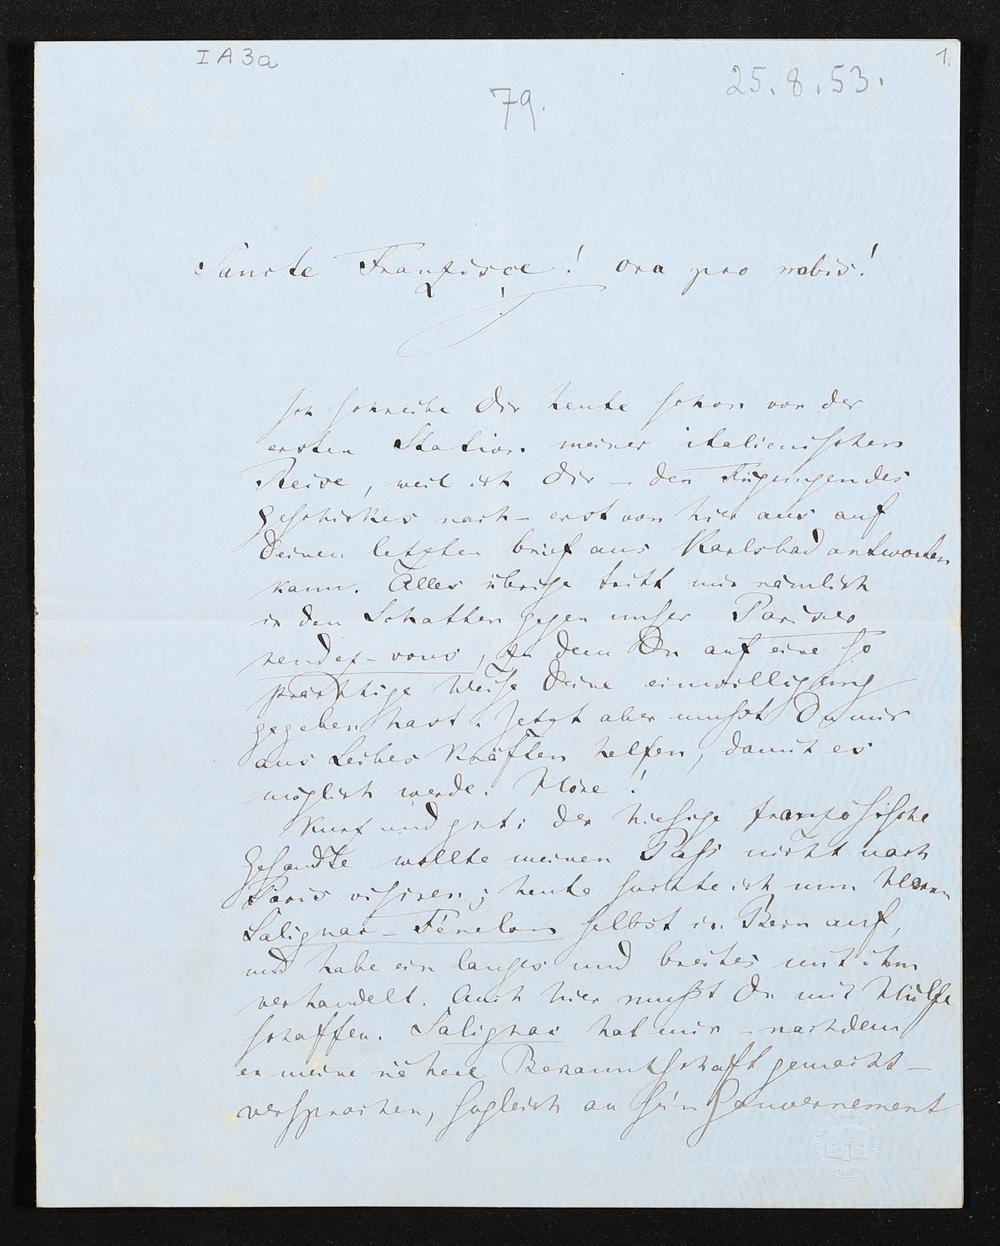 I A 3a
1.
25.8.53.
79.
Sancte Franzisce! ora pro nobis!
Ich schreibe Dir heute schon von der
ersten Station meiner italienischen
Reise, weil ich Dir – den Fügungen des
Geschickes nach – erst von hier aus auf
Deinen letzten brief aus Karlsbad antworten
kann. Alles übrige tritt mir nämlich
in den Schatten gegen unser Pariser
rendez-vous, zu dem Du auf eine so
prächtige Weise Deine einwilligung
gegeben hast. Jetzt aber musst Du mir
aus Leibes Kräften helfen, damit es
möglich werde. Höre!
Kurz und gut: der hiesige französische
Gesandte wollte meinen Pass nicht nach
Paris visiren; heute suchte ich nun Herrn
Salignac-Fénelon selbst in Bern auf,
und habe ein langes und breites mit ihm
verhandelt. Auch hier musst Du mit Hülfe
schaffen. Salignac hat mir – nachdem
er meine nähere Bekanntschaft gemacht –
versprochen, sogleich an sein Gouvernement